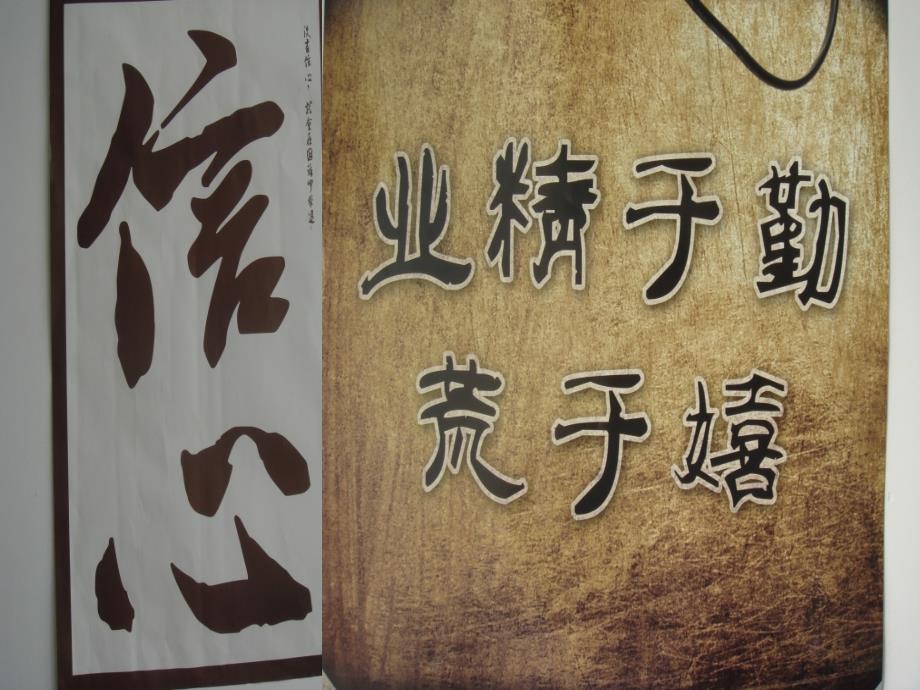 信心
业精于勤
荒于嬉